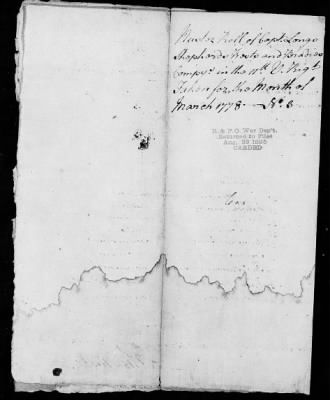 Muster Roll of Capt. Longs
Shepherds Wests and Bradies
Compys in the 11th V. Regt
Taken for the Month of
March 1778 No. 8
R. & P. O. War Dep't.
Returned to Files
Aug. 23 1895
CARDED